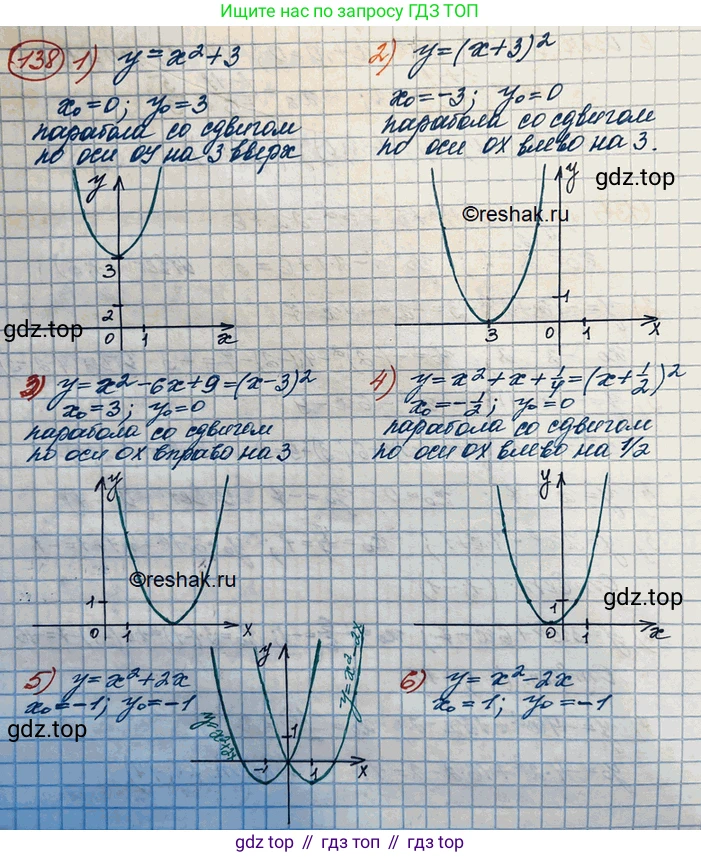 Ищите нас по запросу ГДЗ ТОП
138 1) y = x² + 3
x₀ = 0; y₀ = 3
парабола со сдвигом
по оси oy на 3 вверх
y
3
2
0 1 x
2) y = (x + 3)²
x₀ = -3; y₀ = 0
парабола со сдвигом
по оси ox влево на 3.
y
gdz.top
©reshak.ru
1
3 0 1 x
gdz.top
3) y = x² - 6x + 9 = (x - 3)²
x₀ = 3; y₀ = 0
парабола со сдвигом
по оси ox вправо на 3
y
©reshak.ru
1
0 1 x
4) y = x² + x + 1/4 = (x + 1/2)²
x₀ = -1/2; y₀ = 0
парабола со сдвигом
по оси ox влево на 1/2
y
gdz.top
1
0 1 x
5) y = x² + 2x
x₀ = -1; y₀ = -1
gdz.top
y
y = x² + 2x
y = x² - 2x
1
-1 1 x
6) y = x² - 2x
x₀ = 1; y₀ = -1
gdz top // гдз топ // gdz top